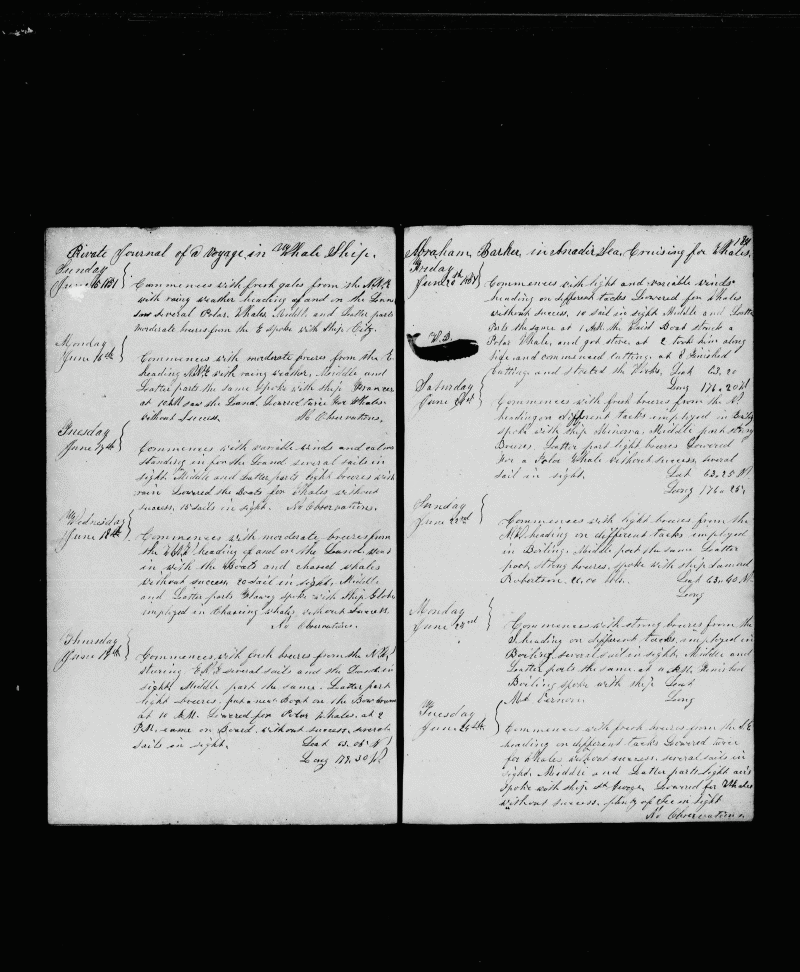 Private Journal of a Voyage in Whale Ship.
Sunday
June 15 1851
Commences with fresh gales from the
with rainy weather heading of and on the
several Polar Whales Middle and Latter parts
morderate breeses from the E spoke with Ship City.
Monday
June 16th
Commences with morderate breeses from the E
heading with rainy weather, Middle and
Latter parts the same Spoke with ship
at 10 AM saw the Land. Lowered twice for Whales
without Success. No Observations.
Tuesday
June 17th
Commences with variable winds and
standing in for the Land. several sails in
sight. Middle and Latter parts light breeses with
rain Lowered the Boats for whales without
success, 15 sails in sight. No Observations.
Wednesday
June 18th
Commences with morderate breeses from
the heading of and on the Land. went
in with the Boats and chased whales
without success, 20 sail in sight, Middle
and Latter parts spoke with Ship Globe,
imployed in Chaseing whales, without Success.
No Observations.
Thursday
June 19th
Commences with fresh breeses from the
stearing several sails and the Land in
sight. Middle part the same. Latter part
light breeses. put a new Boat on the Bow
at 10 AM. Lowered for Polar Whales. at 2
PM. came on Board, without success, several
sails in sight. Lat 63.05 N
Long 178.30 W
Abraham Barker in Anadir Sea, Cruising for Whales.
Friday
June 20th 1851
Commences with light and variable winds
heading on different tacks Lowered for Whales
without success. 10 sail in sight Middle and Latter
Parts the same at 1 AM the Waist Boat struck a
Polar Whale, and got stove. at 2 took him along
side and commenced cutting. at 8 Finished
Cutting and started the Works. Lat 63.20
Long 176.20 W
Saturday
June 21st
Commences with fresh breeses from the
heading on different tacks imployed in
spoke with ship Minerva. Middle part strong
Breeses. Latter part light breeses Lowered
for a Polar Whale without success, several
sail in sight. Lat 63.25 N.
Long 176.25.
Sunday
June 22nd
Commences with light breeses from the
heading on different tacks imployed
in Boiling. Middle part the same Latter
part, strong breeses. spoke with ship
Robertson. Lat 63.40 N.
Long
Monday
June 23rd
Commences with strong breeses from the
heading on different tacks, imployed in
Boiling, several sail in sight. Middle and
Latter parts the same. at finished
Boiling spoke with ship Lat
Mt Vernon. Long
Tuesday
June 24th
Commences with fresh breeses from the
heading on different tacks Lowered twice
for whales without success. several sails in
sight. Middle and Latter parts light airs
Spoke with ship St George. Lowered for Whales
without success. plenty of Ice in sight
No Observations.